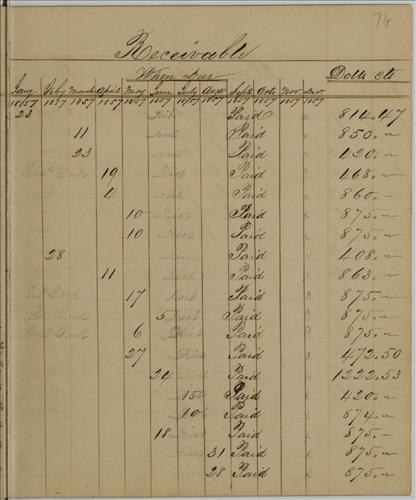 76
Receivable
When Due Dolls cts
Jany Feby March April May June July Augt Septr Octr Nov. Decr.
1857 1857 1857 1857 1857 1857 1857 1857 1857 1857 1857 1857
23 Paid x 814.47
11 Paid x 850.
23 Paid x 420.
19 Paid x 468.
4 Paid x 860.
10 Paid x 875.
10 Paid x 875.
28 Paid x 408.
11 Paid x 863.
17 Paid 875.
5 Paid 875.
6 Paid 875.
27 Paid x 472.50
24 Paid x 1222.53
15 Paid x 420.
10 Paid x 874.
18 Paid x 875.
31 Paid x 875.
28 Paid x 875.